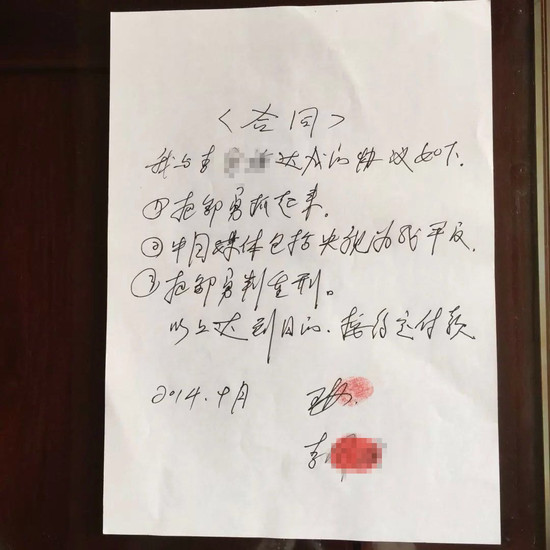 《合同》
我与李达成的协议如下.
①把邹勇抓起来.
②中国媒体包括央视为我平反.
③把邹勇判重刑。
以上达到目的.按约定付款
2014.十月
王
李